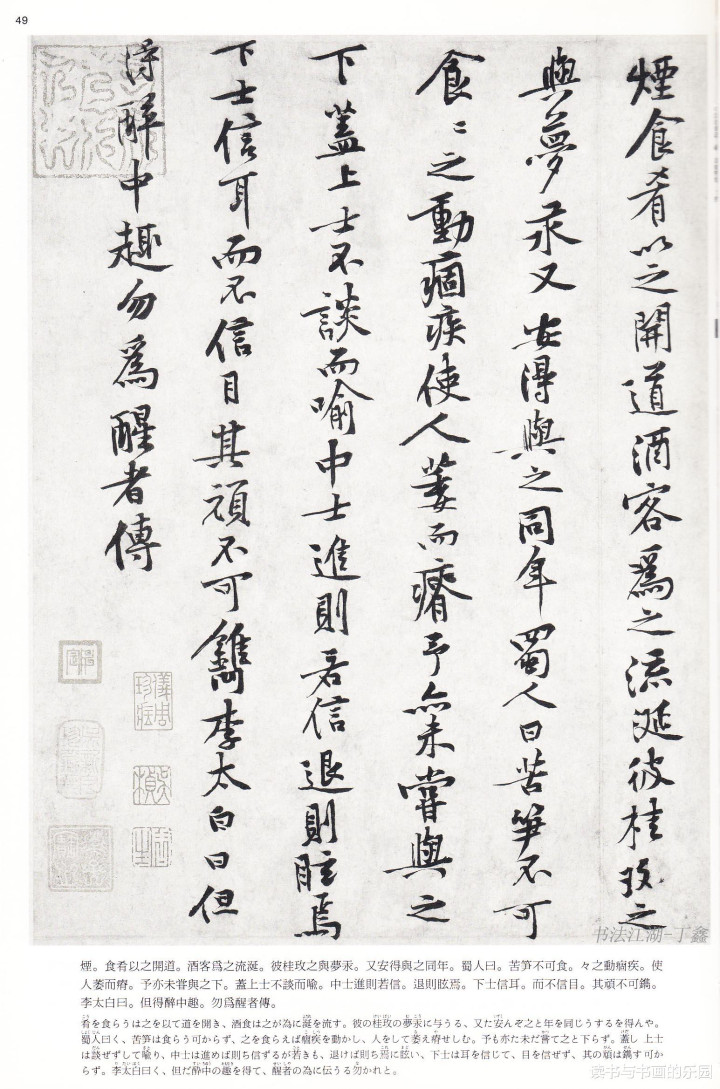 49
煙食肴以之開道酒客爲之流涎彼桂玫之
與夢汞又安得與之同年蜀人曰苦笋不可
食〻之動痼疾使人萎而瘠予亦未嘗與之
下蓋上士不談而喻中士進則若信退則眩焉
下士信耳而不信目其頑不可鐫李太白曰但
得醉中趣勿爲醒者傳
书法江湖-丁鑫
煙。食肴以之開道。酒客爲之流涎。彼桂玫之與夢汞。又安得與之同年。蜀人曰。苦笋不可食。々之動痼疾。使
人萎而瘠。予亦未甞與之下。蓋上士不談而喻。中士進則若信。退則眩焉。下士信耳。而不信目。其頑不可鐫。
李太白曰。但得醉中趣。勿爲醒者傳。
肴を食らうは之を以て道を開き、酒食は之が為に涎を流す。彼の桂玫の夢汞に与うる、又た安んぞと年を同じうするを得んや。
蜀人曰く、苦笋は食らう可からず、之を食らえば痼疾を動かし、人をして萎え瘠せしむ。予も亦た未だ嘗て之と下らず。蓋し上士
は談ぜずして喩り、中士は進めば則ち信ずるが若きも、退けば則ち焉に眩い、下士は耳を信じて、目を信ぜず、其の頑は鐫す可か
らず。李太白曰く、但だ酔中の趣を得て、醒者の為に伝うる勿かれと。
读书与书画的乐园